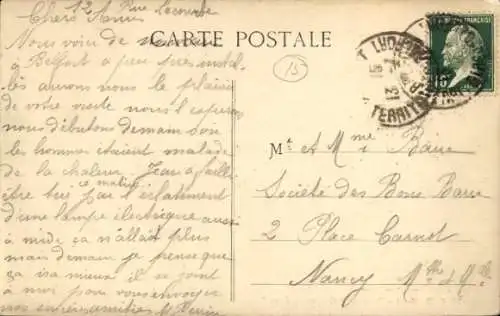 12 Rue Lecourbe
Chers Amis
Nous voici de nouveau
à Belfort à peu près instal-
lés aurons nous le plaisir
de votre visite nous l'espérons
nous débutons demain
les hommes étaient malade
de la chaleur Jean a failli
être tué ce matin par l'éclatement
d'une lampe électrique aussi
à midi ça n'allait plus
mais demain je pense que
ça ira mieux il se joint
à moi pour vous envoyer
nos sincères amitiés
CARTE POSTALE
15
15
TERRIT
Mr et Mme Barre
Société des Bons Barre
2 Place Carnot
Nancy Mthe & Mlle